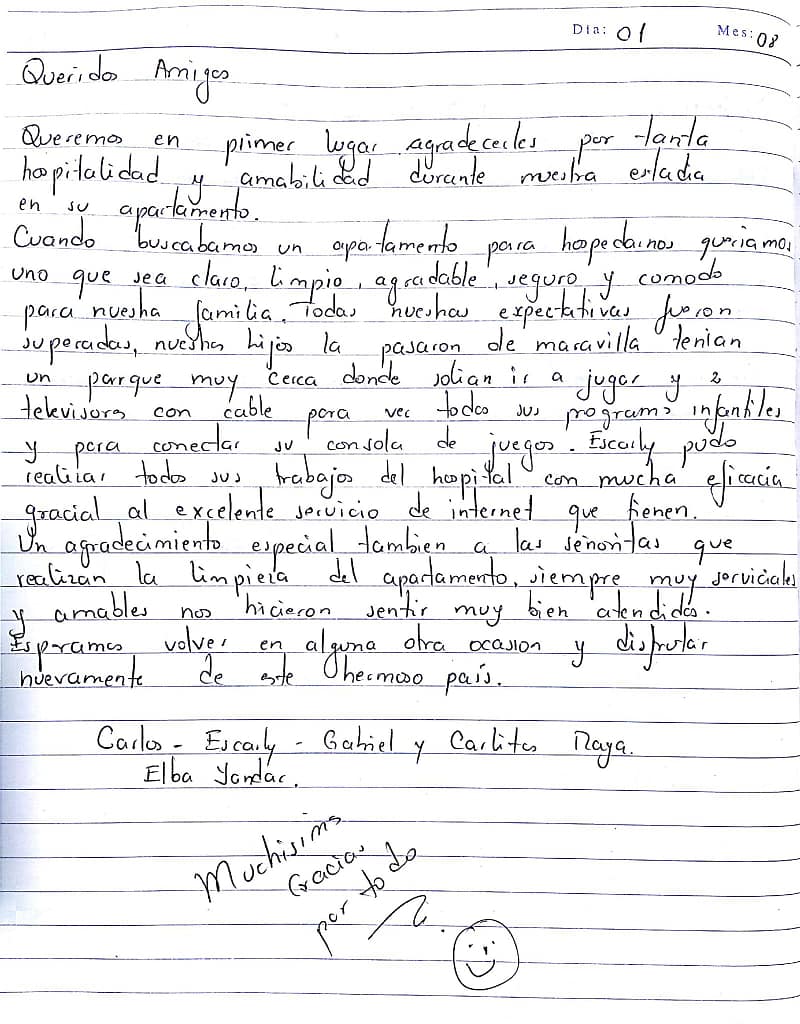 Dia: 01 Mes: 08
Queridos Amigos
Queremos en primer lugar agradecerles por tanta
hospitalidad y amabilidad durante nuestra estadia
en su apartamento.
Cuando buscabamos un apartamento para hospedarnos queriamos
uno que sea claro, limpio, agradable, seguro y comodo
para nuestra familia. Todas nuestras expectativas fueron
superadas, nuestros hijos la pasaron de maravilla tenian
un parque muy cerca donde solian ir a jugar y 2
televisores con cable para ver todos sus programas infantiles
y para conectar su consola de juegos. Escarly pudo
realizar todos sus trabajos del hospital con mucha eficacia
gracial al excelente servicio de internet que tienen.
Un agradecimiento especial tambien a las señoritas que
realizan la limpieza del apartamento, siempre muy serviciales
y amables nos hicieron sentir muy bien atendidos.
Esperamos volver en alguna otra ocasion y disfrutar
nuevamente de este hermoso país.
Carlos - Escarly - Gabriel y Carlitos Raya.
Elba
Muchisimas
Gracias
por todo